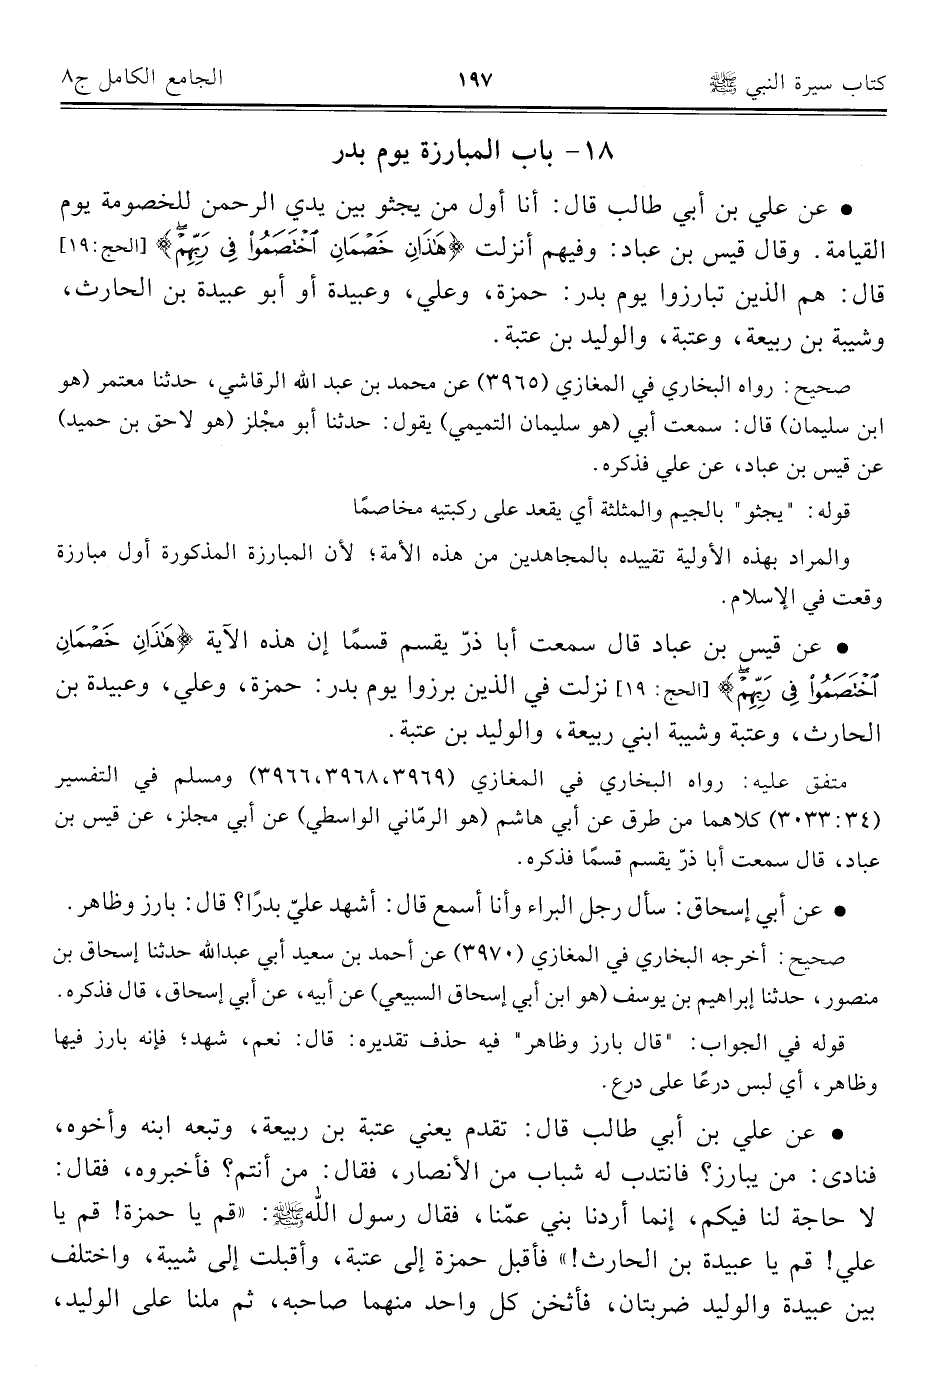 كتاب سيرة النبي ﷺ ١٩٧ الجامع الكامل ج٨
١٨- باب المبارزة يوم بدر
• عن علي بن أبي طالب قال: أنا أول من يجثو بين يدي الرحمن للخصومة يوم
القيامة. وقال قيس بن عباد: وفيهم أنزلت ﴿هَٰذَانِ خَصْمَانِ ٱخْتَصَمُوا۟ فِى رَبِّهِمْ ۖ﴾ [الحج:١٩]
قال: هم الذين تبارزوا يوم بدر: حمزة، وعلي، وعبيدة أو أبو عبيدة بن الحارث،
وشيبة بن ربيعة، وعتبة، والوليد بن عتبة.
صحيح: رواه البخاري في المغازي (٣٩٦٥) عن محمد بن عبد الله الرقاشي، حدثنا معتمر (هو
ابن سليمان) قال: سمعت أبي (هو سليمان التميمي) يقول: حدثنا أبو مجْلز (هو لاحق بن حميد)
عن قيس بن عباد، عن علي فذكره.
قوله: "يجثو" بالجيم والمثلثة أي يقعد على ركبتيه مخاصمًا
والمراد بهذه الأولية تقييده بالمجاهدين من هذه الأمة؛ لأن المبارزة المذكورة أول مبارزة
وقعت في الإسلام.
• عن قيس بن عباد قال سمعت أبا ذرّ يقسم قسمًا إن هذه الآية ﴿هَٰذَانِ خَصْمَانِ
ٱخْتَصَمُوا۟ فِى رَبِّهِمْ ۖ﴾ [الحج: ١٩] نزلت في الذين برزوا يوم بدر: حمزة، وعلي، وعبيدة بن
الحارث، وعتبة وشيبة ابني ربيعة، والوليد بن عتبة.
متفق عليه: رواه البخاري في المغازي (٣٩٦٦،٣٩٦٨،٣٩٦٩) ومسلم في التفسير
(٣٠٣٣:٣٤) كلاهما من طرق عن أبي هاشم (هو الرمّاني الواسطي) عن أبي مجلز، عن قيس بن
عباد، قال سمعت أبا ذرّ يقسم قسمًا فذكره.
• عن أبي إسحاق: سأل رجل البراء وأنا أسمع قال: أشهد عليّ بدرًا؟ قال: بارز وظاهر.
صحيح: أخرجه البخاري في المغازي (٣٩٧٠) عن أحمد بن سعيد أبي عبدالله حدثنا إسحاق بن
منصور، حدثنا إبراهيم بن يوسف (هو ابن أبي إسحاق السبيعي) عن أبيه، عن أبي إسحاق، قال فذكره.
قوله في الجواب: "قال بارز وظاهر" فيه حذف تقديره: قال: نعم، شهد؛ فإنه بارز فيها
وظاهر، أي لبس درعًا على درع.
• عن علي بن أبي طالب قال: تقدم يعني عتبة بن ربيعة، وتبعه ابنه وأخوه،
فنادى: من يبارز؟ فانتدب له شباب من الأنصار، فقال: من أنتم؟ فأخبروه، فقال:
لا حاجة لنا فيكم، إنما أردنا بني عمّنا، فقال رسول الله ﷺ: «قم يا حمزة! قم يا
علي! قم يا عبيدة بن الحارث!» فأقبل حمزة إلى عتبة، وأقبلت إلى شيبة، واختلف
بين عبيدة والوليد ضربتان، فأثخن كل واحد منهما صاحبه، ثم ملنا على الوليد،